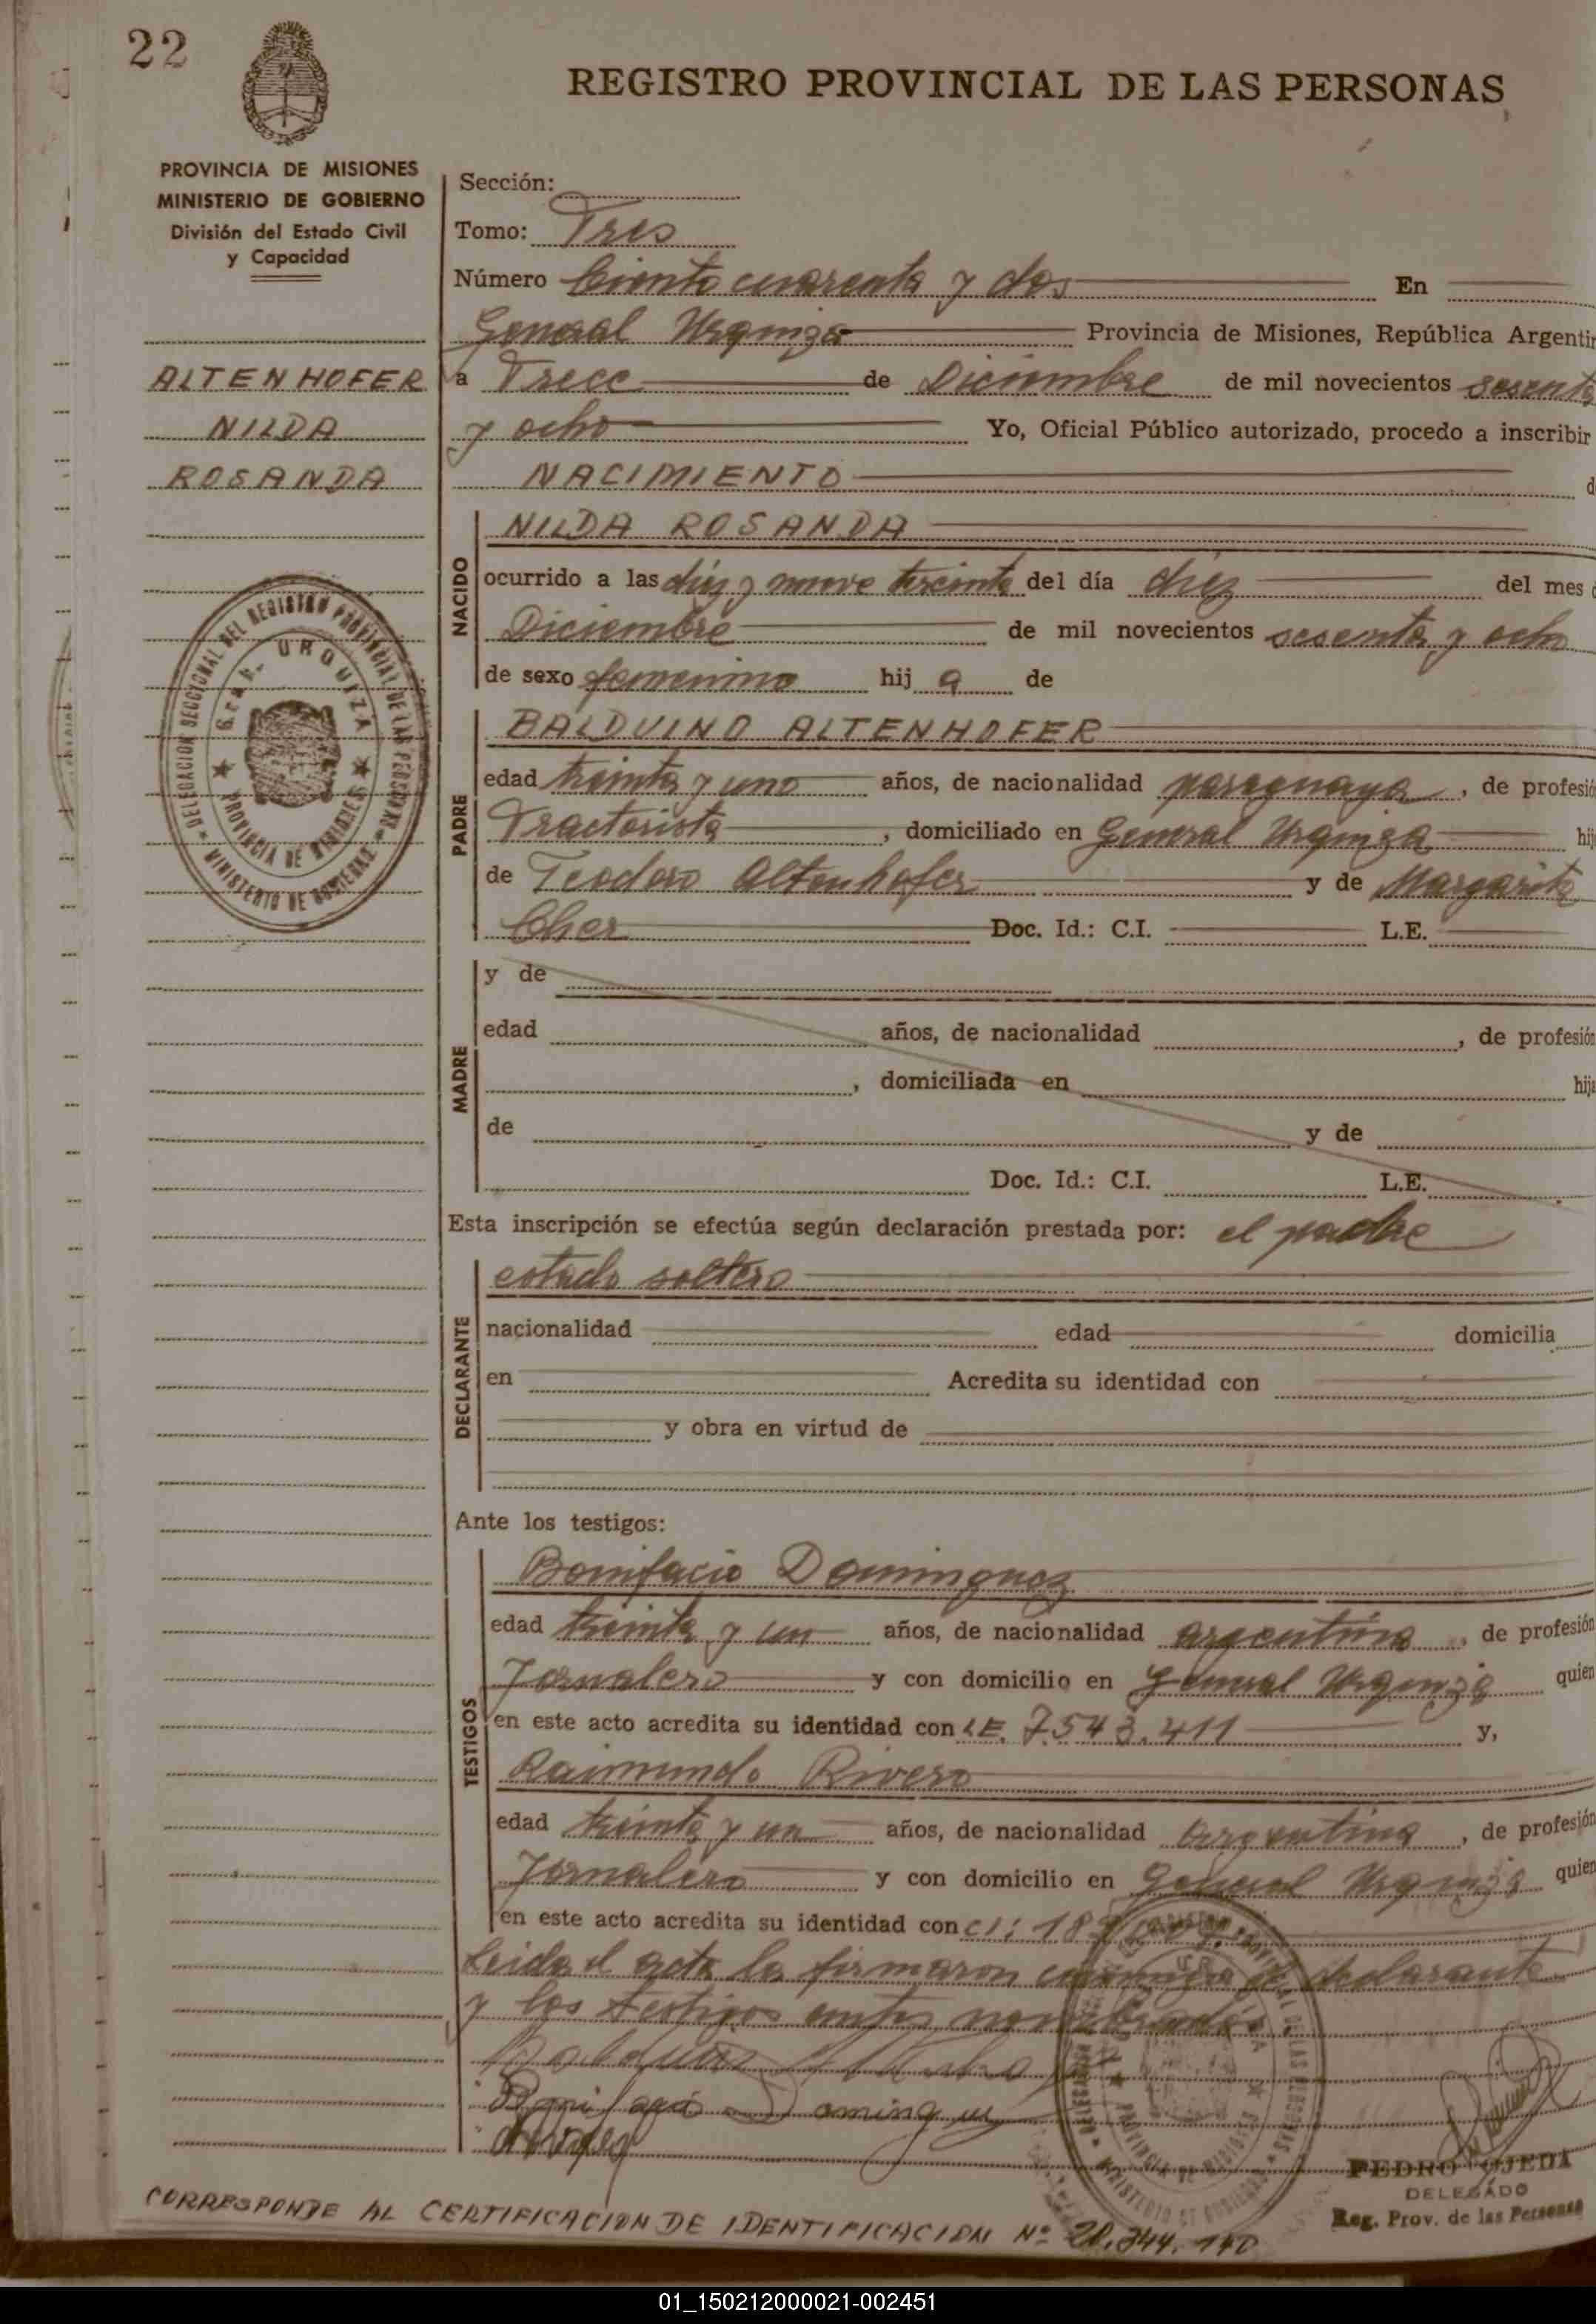 22
REGISTRO PROVINCIAL DE LAS PERSONAS
PROVINCIA DE MISIONES
MINISTERIO DE GOBIERNO
División del Estado Civil
y Capacidad
ALTENHOFER
NILDA
ROSANDA
DELEGACION SECCIONAL DEL REGISTRO PROVINCIAL DE LAS PERSONAS
Gral. URQUIZA
PROVINCIA DE MISIONES
MINISTERIO DE GOBIERNO
Sección:
Tomo: Tres
Número Ciento cuarenta y dos En
General Urquiza Provincia de Misiones, República Argentin
a Trece de Diciembre de mil novecientos sesenta
y ocho Yo, Oficial Público autorizado, procedo a inscribir
NACIMIENTO d
NACIDO
NILDA ROSANDA
ocurrido a las diez y nueve treinta del día diez del mes d
Diciembre de mil novecientos sesenta y ocho
de sexo femenino hij a de
PADRE
BALDUINO ALTENHOFER
edad treinta y uno años, de nacionalidad paraguaya, de profesió
Tractorista, domiciliado en General Urquiza hij
de Teodoro Altenhofer y de Margarita
Cher Doc. Id.: C.I. L.E.
MADRE
y de
edad años, de nacionalidad , de profesión
, domiciliada en hija
de y de
Doc. Id.: C.I. L.E.
Esta inscripción se efectúa según declaración prestada por: el padre
DECLARANTE
estado soltero
nacionalidad edad domicilia
en Acredita su identidad con
y obra en virtud de
Ante los testigos:
TESTIGOS
Bonifacio Dominguez
edad treinta y un años, de nacionalidad argentina, de profesión
Jornalero y con domicilio en General Urquiza quien
en este acto acredita su identidad con LE. 7.543.411 y,
Raimundo Rivero
edad treinta y un años, de nacionalidad argentina, de profesión
Jornalero y con domicilio en General Urquiza quien
en este acto acredita su identidad con CI:
Leida el acta la firmaron conmigo el declarante
y los testigos antes nombrados.
Bonifacio Dominguez
PEDRO OJEDA
DELEGADO
Reg. Prov. de las Personas
CORRESPONDE AL CERTIFICACION DE IDENTIFICACION Nº 20.344.140
01_150212000021-002451